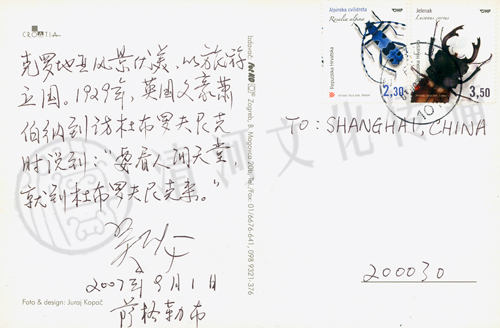 CROATIA
克罗地亚风景优美，以旅游
立国。1929年，英国文豪萧
伯纳到访杜布罗夫尼克
时说到：“要看人间天堂，
就到杜布罗夫尼克来。”
2007年9月1日
萨格勒布
Foto & design: Juraj Kopač
Zagreb, B. Magovca 20B, Tel./Fax: 01/6676-641, 098 9321-376
Alpinska cvilidreta
Rosalia alpina
Republika Hrvatska
2,30
Jelenak
Lucanus cervus
Republika Hrvatska
3,50
TO: SHANGHAI, CHINA
200030